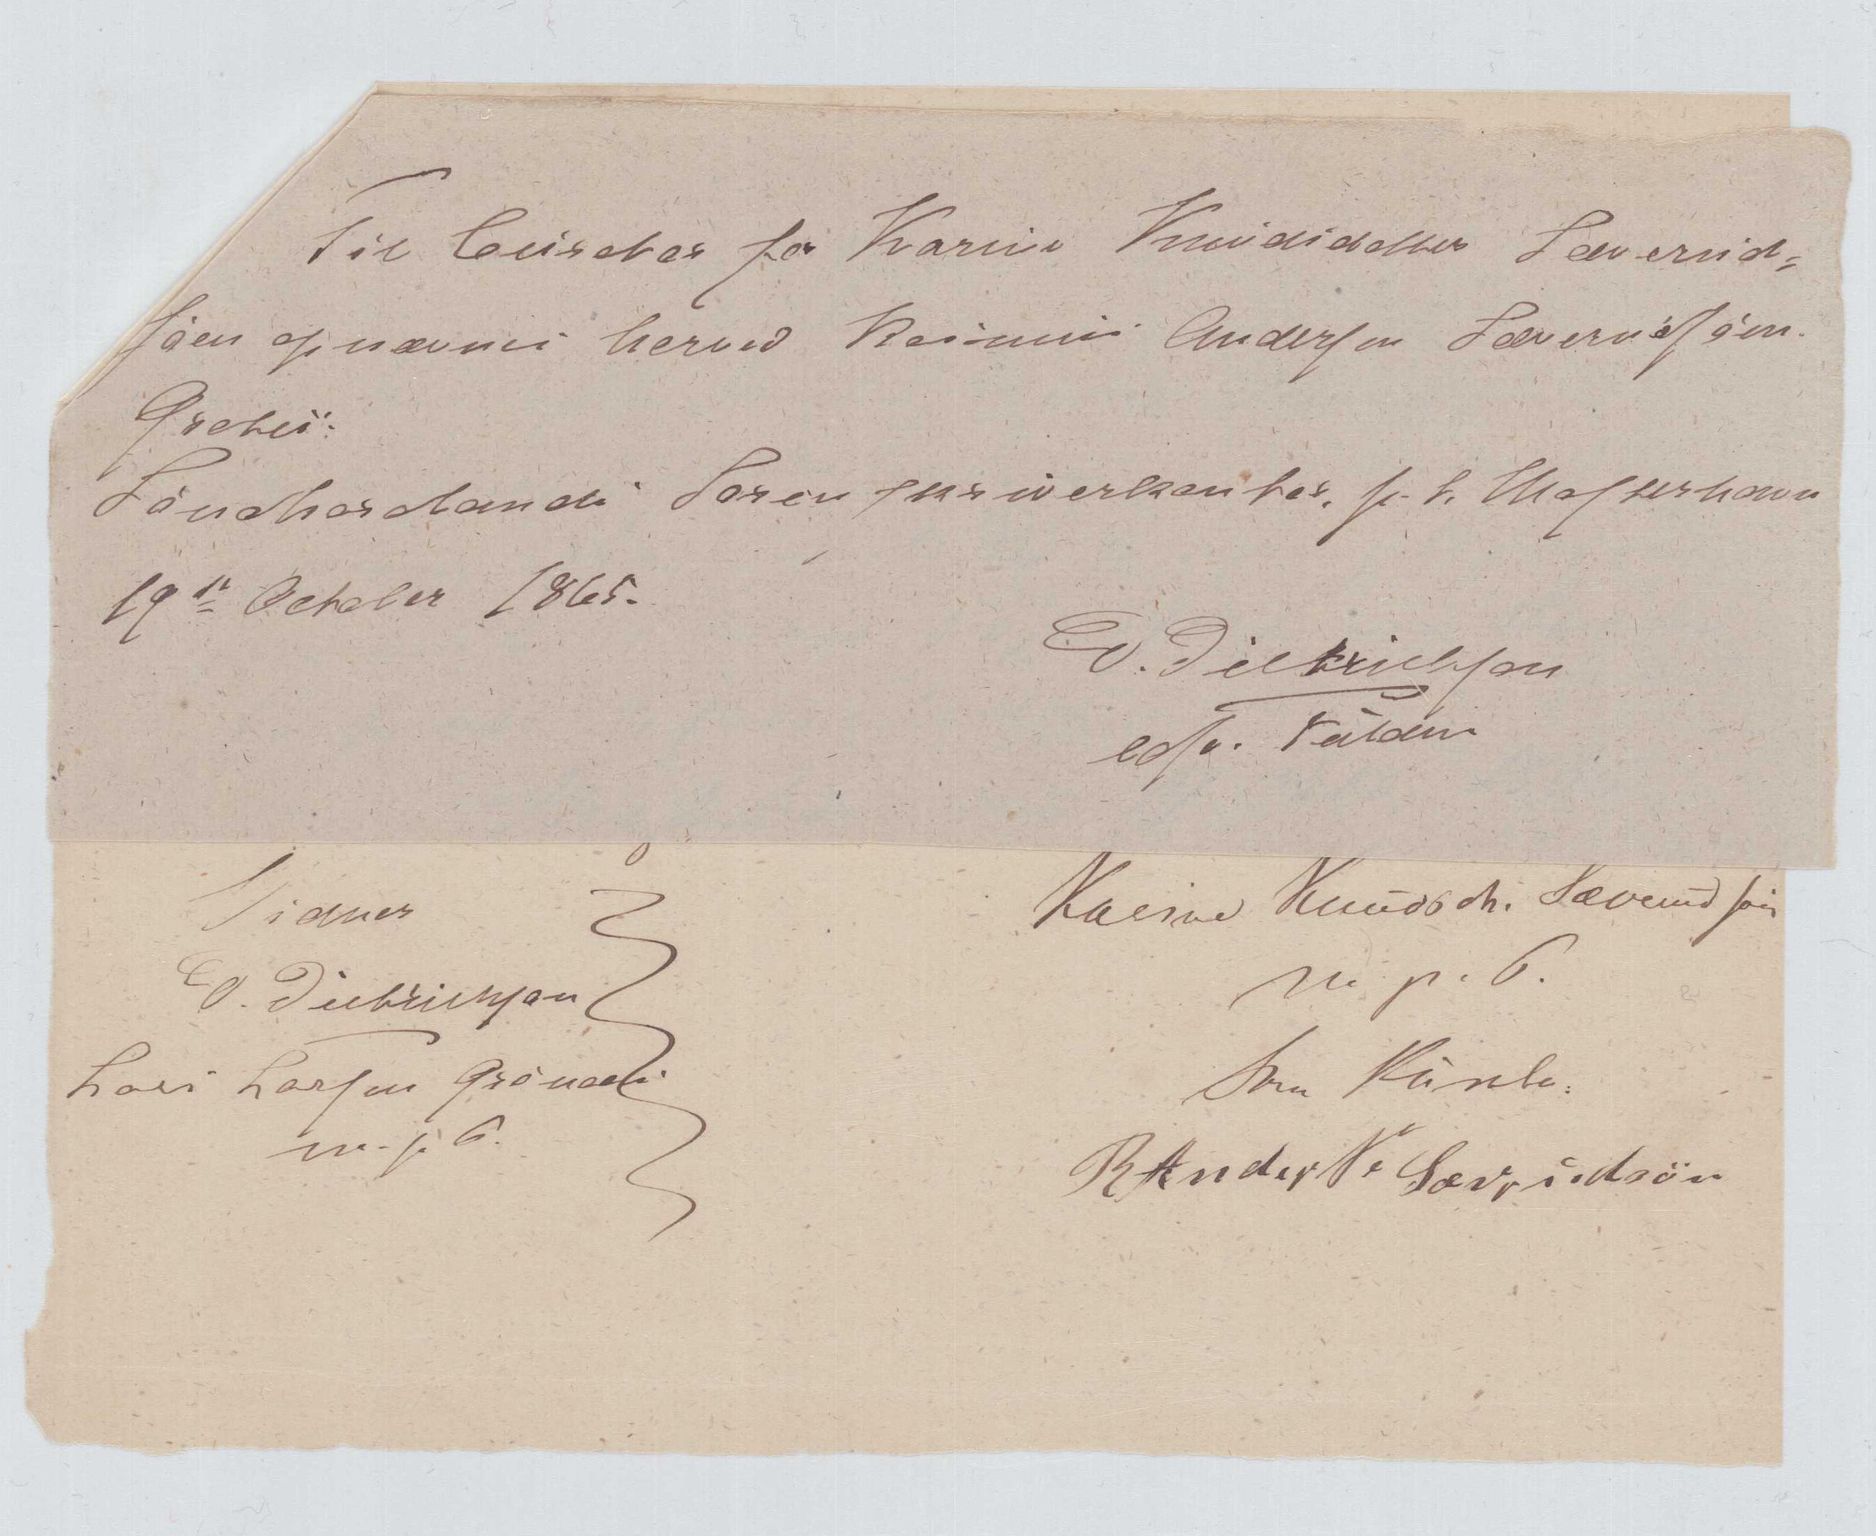 Til Curator for Karine Knudsdatter Sæverud-
söen opnævnes herved Rasmus Andersen Sæverudsöen.
Gratis.
Söndhordlands Sorenskriverkontor, p. t. Mosterhavn
19de October 1865.
E. Dietrichson
cst. Fuldm
Vidner
E. Dietrichson
Lars Larsen Grönnes
m. p. P.
Karine Knudsdtr. Sæverudsöen
m. p. P.
Som Kurator:
R Anders Sæverudsöen